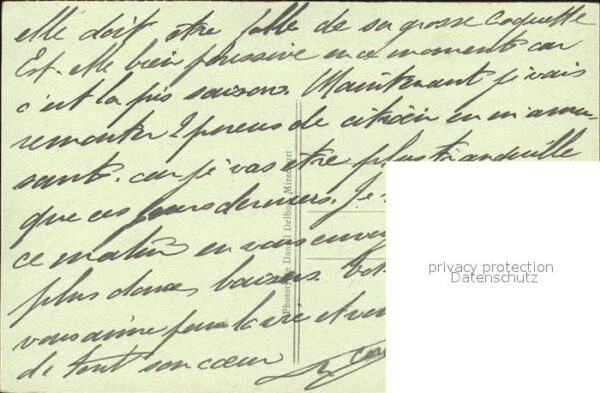 elle doit etre folle de sa grosse coquette
Est elle bien poussive en ce moment car
c'est la saisons. Maintenant je vais
remonter 2 pneus de citroën en m'amu-
sant. car je vas etre plus tranquille
que ces jours derniers. Je
ce matin en vous
plus doux baisers.
vous aime pour la vie et
de tout son cœur
Phototypie Daniel Delboy, Mirecourt
privacy protection
Datenschutz